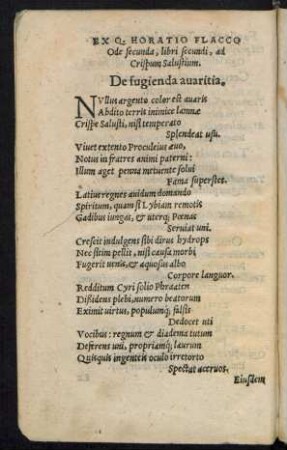 EX Q. HORATIO FLACCO
Ode secunda, libri secundi, ad
Crispum Salustium.
De fugienda avaritia.
NVllus argento color est auaris
Abdito terris inimice lamnæ
Crispe Salusti, nisi temperato
Splendeat usu.
Viuet extento Proculeius æuo,
Notus in fratres animi paterni:
Illum aget penna metuente solui
Fama superstes.
Latius regnes auidum domando
Spiritum, quam si Lybiam remotis
Gadibus iungas, & uterq; Pœnus
Seruiat uni.
Crescit indulgens sibi dirus hydrops
Nec sitim pellit, nisi causa morbi
Fugerit uenis, & aquosus albo
Corpore languor.
Redditum Cyri solio Phraaten
Dissidens plebi, numero beatorum
Eximit uirtus, populumq; falsis
Dedocet uti
Vocibus: regnum & diadema tutum
Deferens uni, propriamq; laurum
Quisquis ingenteis oculo irretorto
Spectat aceruos.
Eiusdem